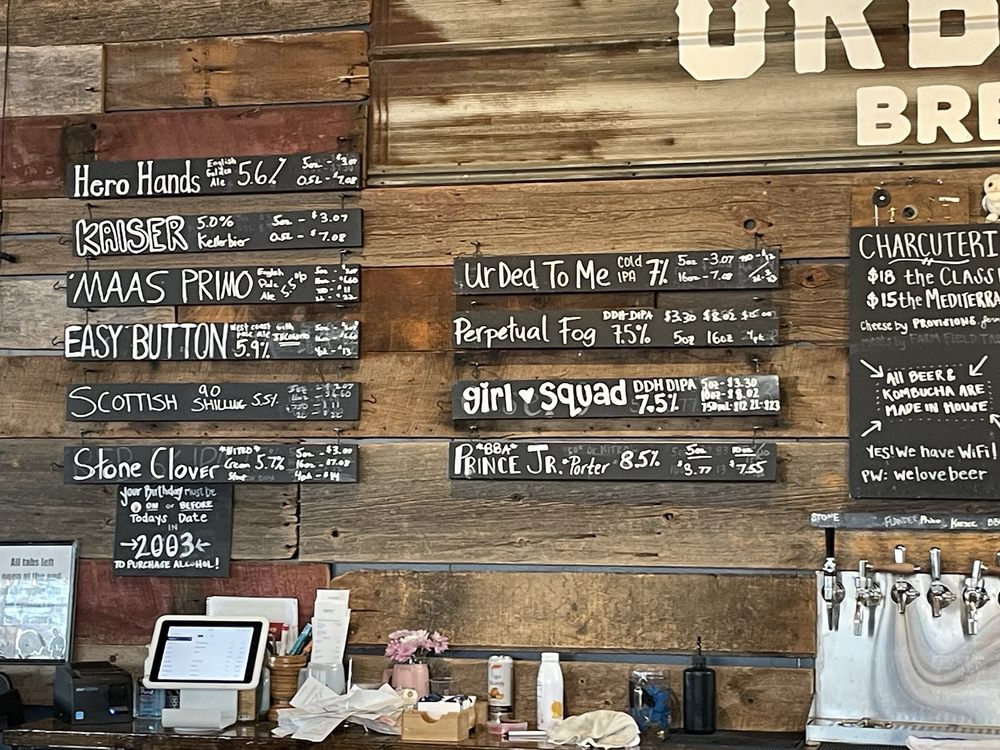 URB
BRE
Hero Hands English Golden Ale 5.6% 5oz - $3.07
0.5L - $7.08
KAISER 5.0% Kellerbier 5oz - $3.07
0.5L - $7.08
MAAS PRIMO English Pale Ale 5.5%
EASY BUTTON West Coast Pale Ale 5.9% with
SCOTTISH 90 SHILLING 5.5%
Stone Clover "NITRO" Cream Stout 5.7% 5oz - $3.07
16oz - $7.08
4pk - $14
Ur Ded To Me Cold IPA 7% 5oz - 3.07
16oz - 7.08
Perpetual Fog DDH-DIPA 7.5% $3.30 $8.02 $15.00
5oz 16oz 4pk
girl ♥ squad DDH DIPA 7.5% 5oz - $3.30
16oz - $8.02
750ml - $12 2L - $23
"BBA" PRINCE JR. Porter 8.5% 5oz 10oz
$3.77 $7.55
CHARCUTERI
$18 the CLASS
$15 the MEDITERRA
cheese by PROVISIONS
meats by FARM FIELD TA
All BEER &
KOMBUCHA ARE
MADE IN HOUSE
YES! We have WiFi!
PW: welovebeer
your Birthday must be
ON or BEFORE
Todays Date
IN
→2003←
TO PURCHASE ALCOHOL!
All tabs left
open at the end
STONE FUNDER Primo KAISER BB